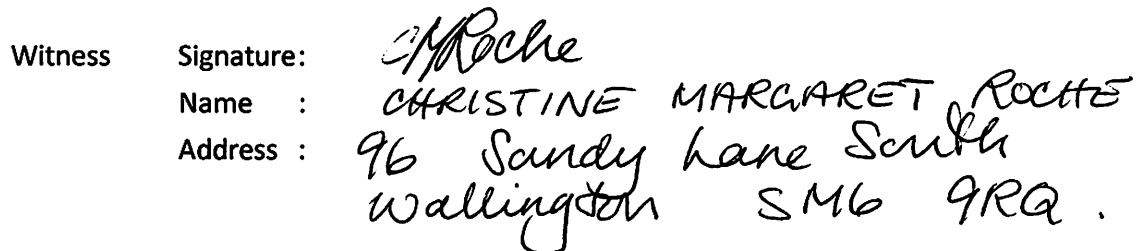 Witness Signature: CMRoche
Name : CHRISTINE MARGARET ROCHE
Address : 96 Sandy Lane South
Wallington SM6 9RQ.